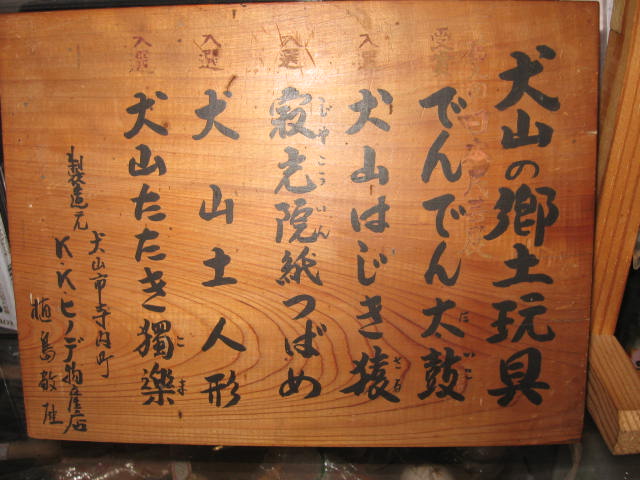 犬山の郷土玩具
受賞
でんでん太鼓
たいこ
入選
犬山はじき猿
ざる
入選
寂光院紙つばめ
じやくこういん
入選
犬山土人形
入選
犬山たたき獨樂
こま
製造元
犬山市寺内町
KKヒノデ物産店
植島敏雄